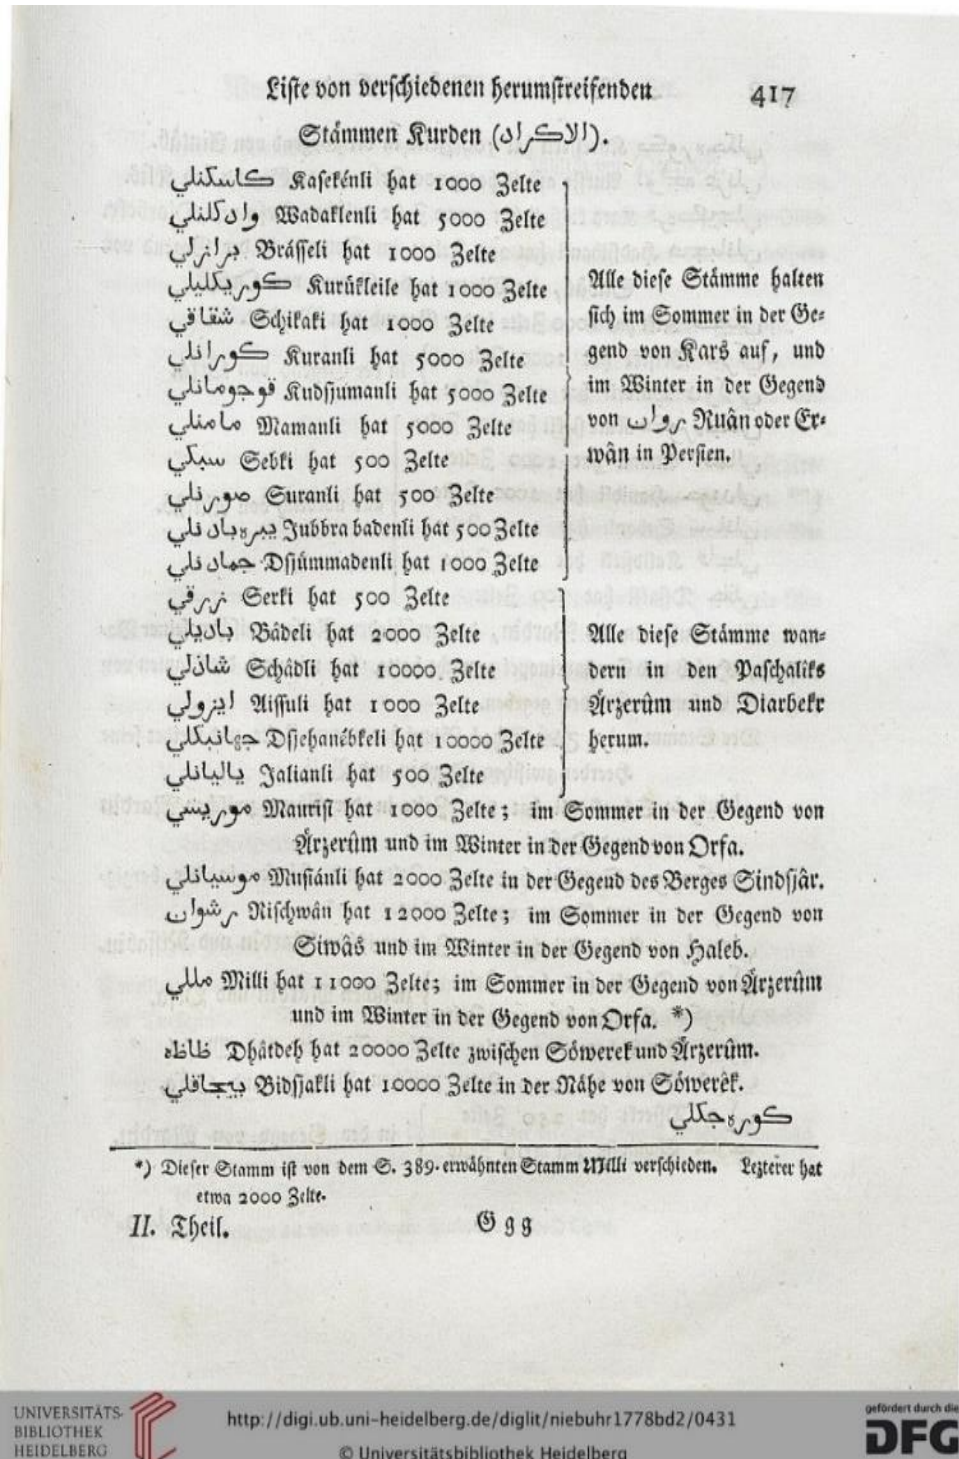 Liste von verschiedenen herumstreifenden 417
Stämmen Kurden (الاكراد).
كاسكنلي Kasekénli hat 1000 Zelte
وادكلنلي Wadaklenli hat 5000 Zelte
برازلي Brásseli hat 1000 Zelte
كوريكليلي Kurükleile hat 1000 Zelte
شقاقي Schikaki hat 1000 Zelte
كورانلي Kuranli hat 5000 Zelte
قوجومانلي Kudsjumanli hat 5000 Zelte
مامنلي Mamanli hat 5000 Zelte
سبكي Sebki hat 500 Zelte
صورنلي Suranli hat 500 Zelte
يبره بادنلي Jubbra badenli hat 500 Zelte
جمادنلي Dsjümmadenli hat 1000 Zelte
Alle diese Stämme halten
sich im Sommer in der Ge-
gend von Kars auf, und
im Winter in der Gegend
von روان Ruân oder Er-
wân in Persien.
زرقي Serki hat 500 Zelte
باديلي Bâdeli hat 2000 Zelte
شادلي Schâdli hat 10000 Zelte
ايزولي Aissuli hat 1000 Zelte
جهانبكلي Dsjehanébkeli hat 10000 Zelte
ياليانلي Jalianli hat 500 Zelte
Alle diese Stämme wan-
dern in den Paschaliks
Ärzerûm und Diarbekr
herum.
موريسي Maurisi hat 1000 Zelte; im Sommer in der Gegend von
Ärzerûm und im Winter in der Gegend von Orfa.
موسيانلي Musiánli hat 2000 Zelte in der Gegend des Berges Sindsjâr.
رشوان Rischwân hat 12000 Zelte; im Sommer in der Gegend von
Siwâs und im Winter in der Gegend von Haleb.
مللي Milli hat 11000 Zelte; im Sommer in der Gegend von Ärzerûm
und im Winter in der Gegend von Orfa. *)
ظاظه Dhâtdeh hat 20000 Zelte zwischen Söwerek und Ärzerûm.
بيجاقلي Bidsjakli hat 10000 Zelte in der Nähe von Söwerêk.
كوره جكلي
*) Dieser Stamm ist von dem S. 389. erwähnten Stamm Milli verschieden. Lezterer hat
etwa 2000 Zelte.
II. Theil. Ggg
UNIVERSITÄTS-
BIBLIOTHEK
HEIDELBERG
http://digi.ub.uni-heidelberg.de/diglit/niebuhr1778bd2/0431
© Universitätsbibliothek Heidelberg
gefördert durch die
DFG